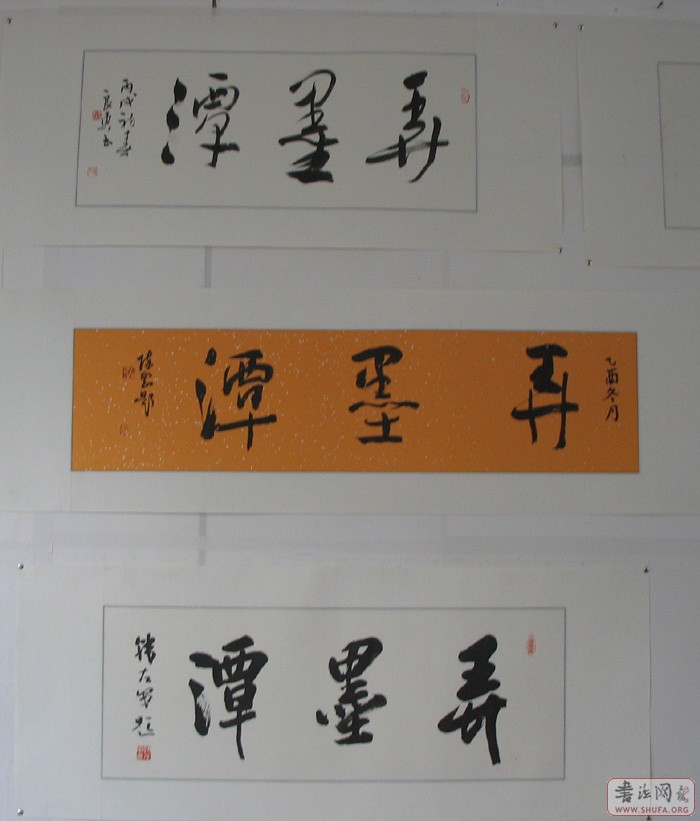 弄墨潭
丙戌初春
乙酉冬月
弄墨潭
弄墨潭
书法网
WWW.SHUFA.ORG